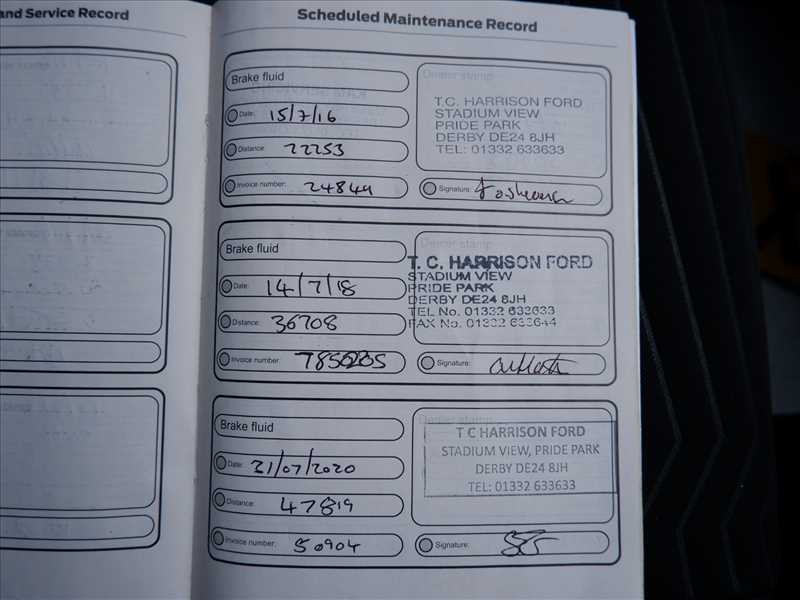 and Service Record
Scheduled Maintenance Record
Brake fluid
Date: 15/7/16
Distance: 22253
Invoice number: 24844
Dealer stamp
T.C. HARRISON FORD
STADIUM VIEW
PRIDE PARK
DERBY DE24 8JH
TEL: 01332 633633
Signature:
Brake fluid
Date: 14/7/18
Distance: 36708
Invoice number:
Dealer stamp
T. C. HARRISON FORD
STADIUM VIEW
PRIDE PARK
DERBY DE24 8JH
TEL No. 01332 633633
FAX No. 01332 633644
Signature:
Brake fluid
Date: 21/07/2020
Distance: 47819
Invoice number: 50904
Dealer stamp
T C HARRISON FORD
STADIUM VIEW, PRIDE PARK
DERBY DE24 8JH
TEL: 01332 633633
Signature: